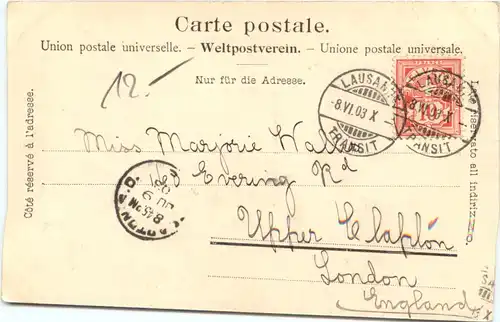 Carte postale.
Union postale universelle. – Weltpostverein. – Unione postale universale.
Nur für die Adresse.
12.-
LAUSANNE
-8.VI.03 X
TRANSIT
LAUSANNE
-8.VI.03 X
TRANSIT
10
Côté réservé à l'adresse.
Lato riservato all indirizzo.
Miss Marjorie
Evering Rd
Upper Clapton
London
England
CLAPTON S.O.
8.45 PM
JU 9
03